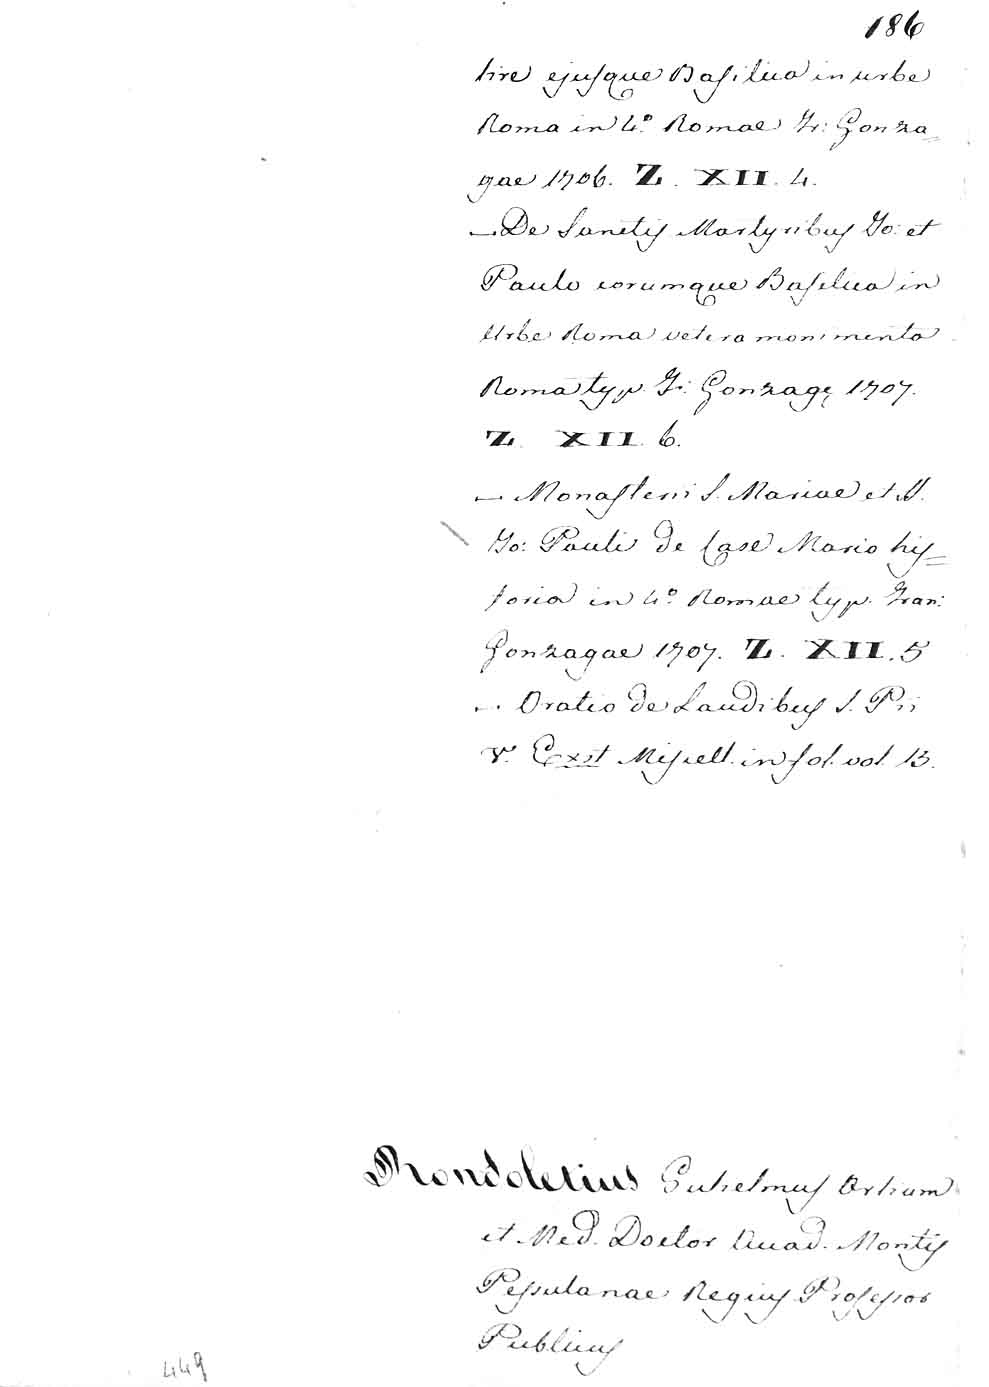 186
tire ejusque Basilica in urbe
Roma in 4.º Romae Fr: Gonza=
gae 1706. Z. XII. 4.
— De Sanctis Martyribus Jo: et
Paulo eorumque Basilica in
Urbe Roma vetera monimenta
Roma typ. Fr: Gonzagę 1707.
Z. XII. 6.
— Monasterii S. Mariae et SS.
Jo: Pauli de Case Mario his=
toria in 4.º Romae typ. Fran:
Gonzagae 1707. Z. XII. 5
— Oratio de Laudibus S. Pii
V. Exst Miscell. in fol. vol. 13.
Rondoletius Gulielmus Artium
et Med. Doctor Acad. Montis
Pessulanae Regius Professor
Publicus
449